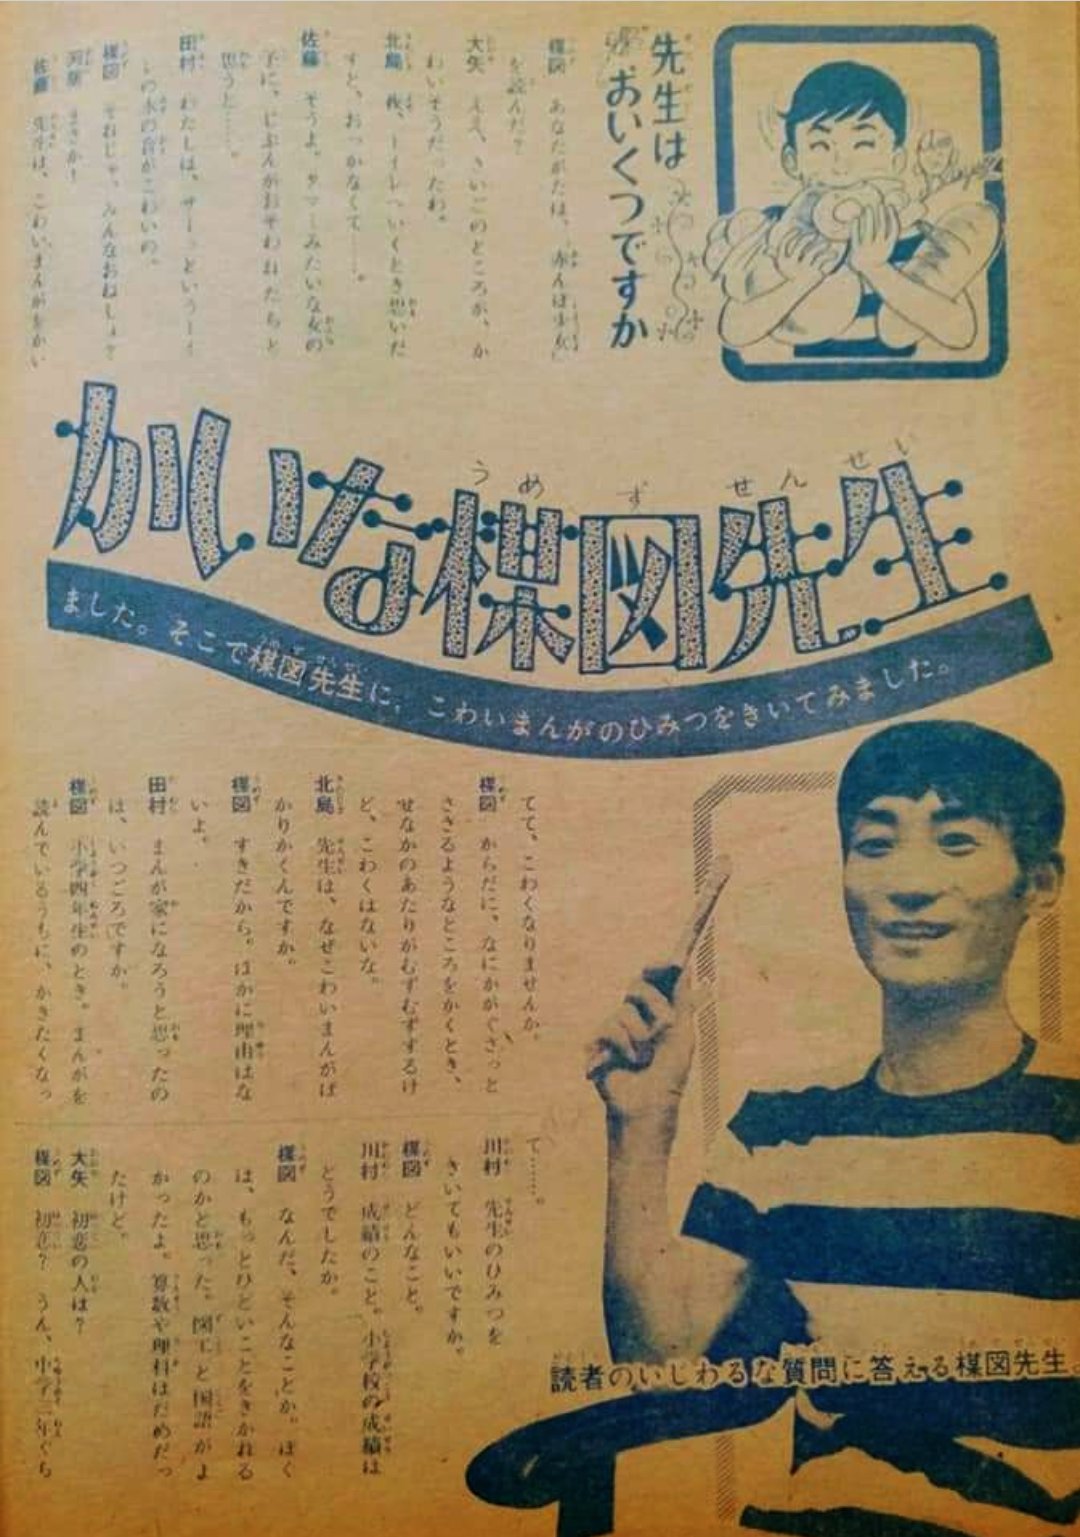 先生は
おいくつですか
楳図　あなたがたは、「赤んぼ少女」
を読んだ？
大矢　ええ、さいごのところが、か
わいそうだったわ。
北島　夜、トイレへいくとき思いだ
すと、おっかなくて……。
佐藤　そうよ。タマミみたいな女の
子に、じぶんがおそわれたらと
思うと……。
田村　わたしは、ザーッというトイ
レの水の音がこわいの。
楳図　それじゃ、みんなおねしょ？
まさか！
佐藤　先生は、こわいまんがをかい
かいな楳図先生
うめずせんせい
ました。そこで楳図先生に、こわいまんがのひみつをきいてみました。
てて、こわくなりませんか。
楳図　からだに、なにかがぐさっと
ささるようなところをかくとき、
せなかのあたりがむずむずするけ
ど、こわくはないな。
北島　先生は、なぜこわいまんがば
かりかくんですか。
楳図　すきだから。ほかに理由はな
いよ。
田村　まんが家になろうと思ったの
は、いつごろですか。
楳図　小学四年生のとき。まんがを
読んでいるうちに、かきたくなっ
て……。
川村　先生のひみつを
きいてもいいですか。
楳図　どんなこと。
川村　成績のこと。小学校の成績は
どうでしたか。
楳図　なんだ、そんなことか。ぼく
は、もっとひどいことをきかれる
のかと思った。図工と国語がよ
かったよ。算数や理科はだめだっ
たけど。
大矢　初恋の人は？
楳図　初恋？　うん、中学二年ぐら
読者のいじわるな質問に答える楳図先生。